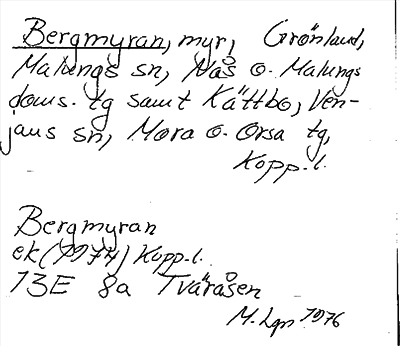 Bergmyran, myr, Grönland,
Malungs sn, Nås o. Malungs
doms. tg samt Kättbo, Ven-
jans sn, Mora o. Orsa tg,
Kopp. l.
Bergmyran
ek (1974) Kopp. l.
13E 8a Tvåråsen
M. Lgn 1976